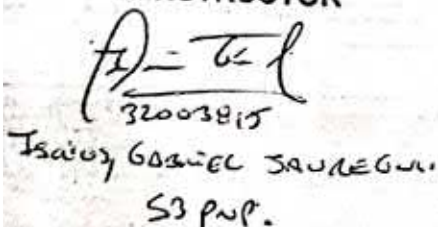 32003815
Isaius, GABRIEL JAUREGUI.
S3 PNP.